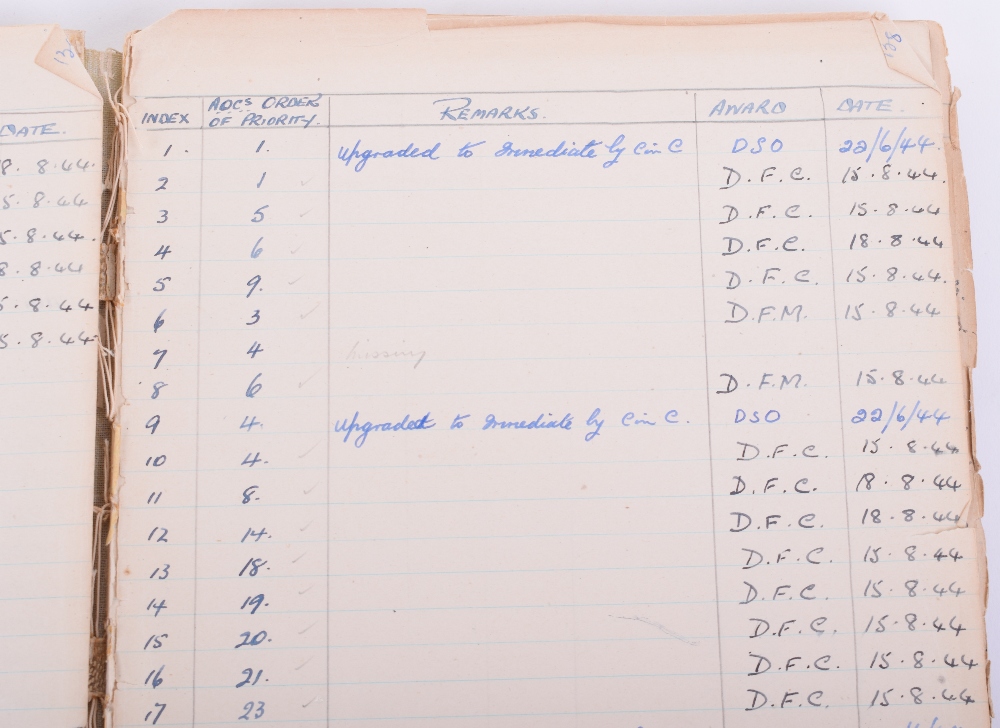 13
38
DATE.
8. 8.44.
5. 8.44
5.8.44.
8.8.44
5.8.44
5.8.44.
INDEX AOCs ORDER OF PRIORITY. REMARKS. AWARD DATE.
1. 1. Upgraded to Immediate by C in C DSO 22/6/44.
2 1 D.F.C. 15.8.44.
3 5 D.F.C. 15.8.44
4 6 D.F.C. 18.8.44
5 9. D.F.C. 15.8.44.
6 3 D.F.M. 15.8.44
7 4 Missing
8 6 D.F.M. 15.8.44
9 4. Upgraded to Immediate by C in C. DSO 22/6/44
10 4. D.F.C. 15.8.44
11 8. D.F.C. 18.8.44
12 14. D.F.C. 18.8.44
13 18. D.F.C. 15.8.44
14 19. D.F.C. 15.8.44
15 20. D.F.C. 15.8.44
16 21. D.F.C. 15.8.44
17 23 D.F.C. 15.8.44